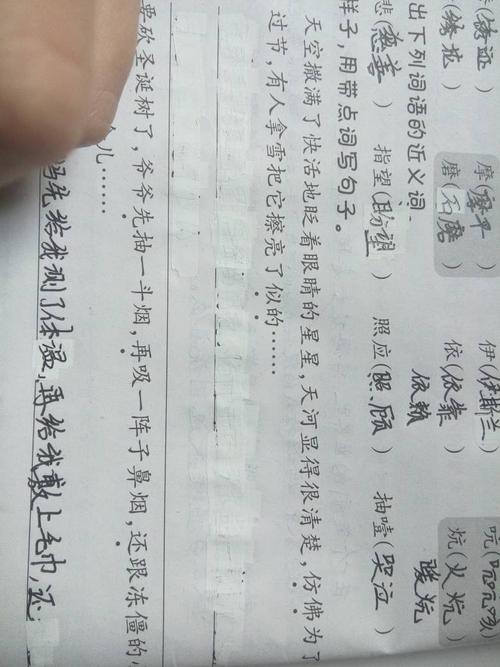 摩( 平) 伊(伊斯兰) 吭(
磨(石磨) 依(依靠) 炕(火炕)
依赖
出下列词语的近义词。
悲(慈善) 指望(盼望) 照应(照顾) 抽噎(哭泣)
样子,用带点词写句子。
天空撒满了快活地眨着眼睛的星星,天河显得很清楚,仿佛为了
过节,有人拿雪把它擦亮了似的……
要砍圣诞树了,爷爷先抽一斗烟,再吸一阵子鼻烟,还跟冻僵的小
儿……
妈先给我测了体温,再给我敷上毛巾,还